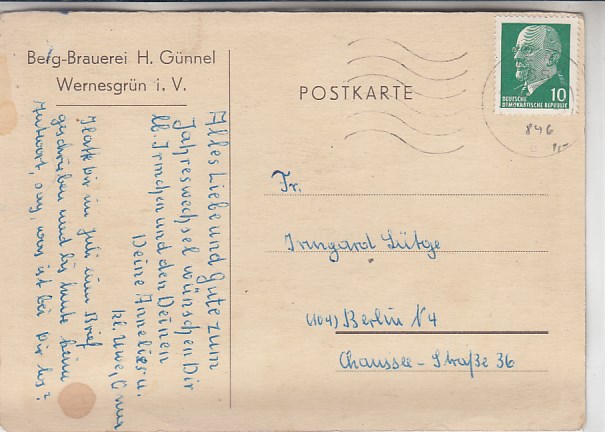 Berg-Brauerei H. Günnel
Wernesgrün i. V.
POSTKARTE
10
DEUTSCHE
DEMOKRATISCHE REPUBLIK
846
Alles Liebe und Gute zum
Jahreswechsel wünschen Dir
lb. Irmchen und den Deinen
Deine Annelies u.
kl. Uwe,
Hatte Dir im Juli einen Brief
geschrieben und bis heute keine
Antwort, sag, was ist bei Dir los?
Fr.
Irmgard Lütge
(104) Berlin N4
Chaussee-Straße 36